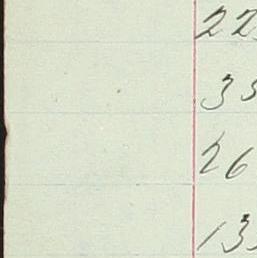 22
33
26
13